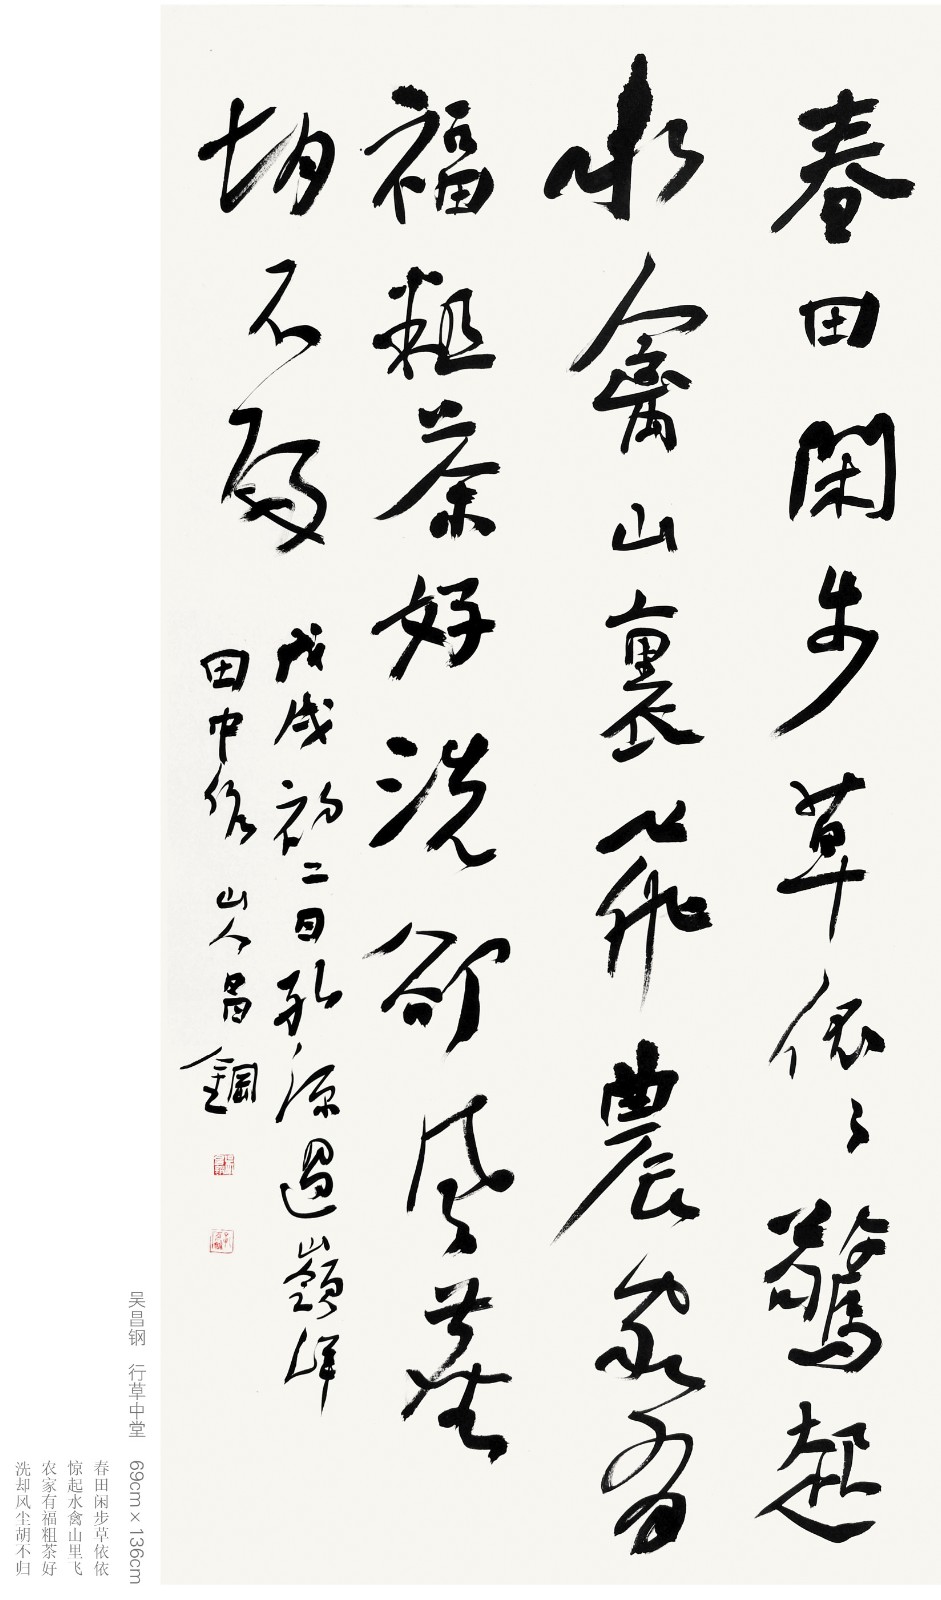 春田閑步草依〻驚起
水禽山裏飛農家有
福粗茶好洗卻風塵
胡不歸
戊戌初二日孔源過嶺洋
田中作 山人昌鋼
吴昌钢 行草中堂 69cm×136cm
春田闲步草依依
惊起水禽山里飞
农家有福粗茶好
洗却风尘胡不归